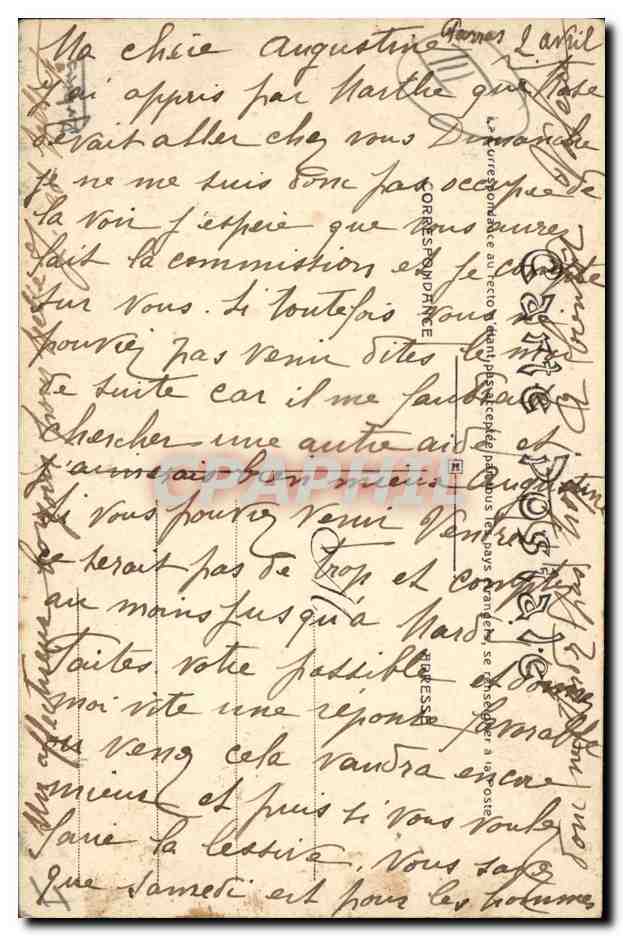 Pannes 2 avril
Ma chère Augustine
J'ai appris par Marthe que Rose
devait aller chez vous Dimanche
je ne me suis donc pas occupée de
la voir j'espère que vous aurez
fait la commission et je compte
sur vous. Si toutefois vous ne
pouviez pas venir dites le moi
de suite car il me faudrait
chercher une autre aide et
j'aimerais bien mieux Augustine
si vous pouviez venir Vendredi
ce serait pas de trop et comptez
au moins jusqu'à Mardi
Faites votre possible et donnez
moi vite une réponse favorable
ou venez cela vaudra encore
mieux et puis si vous voulez
faire la lessive. Vous savez
que samedi est pour les hommes
Carte Postale
La Correspondance au recto n'étant pas acceptée par tous les pays étrangers, se renseigner à la Poste
CORRESPONDANCE
ADRESSE
CPAPHIL